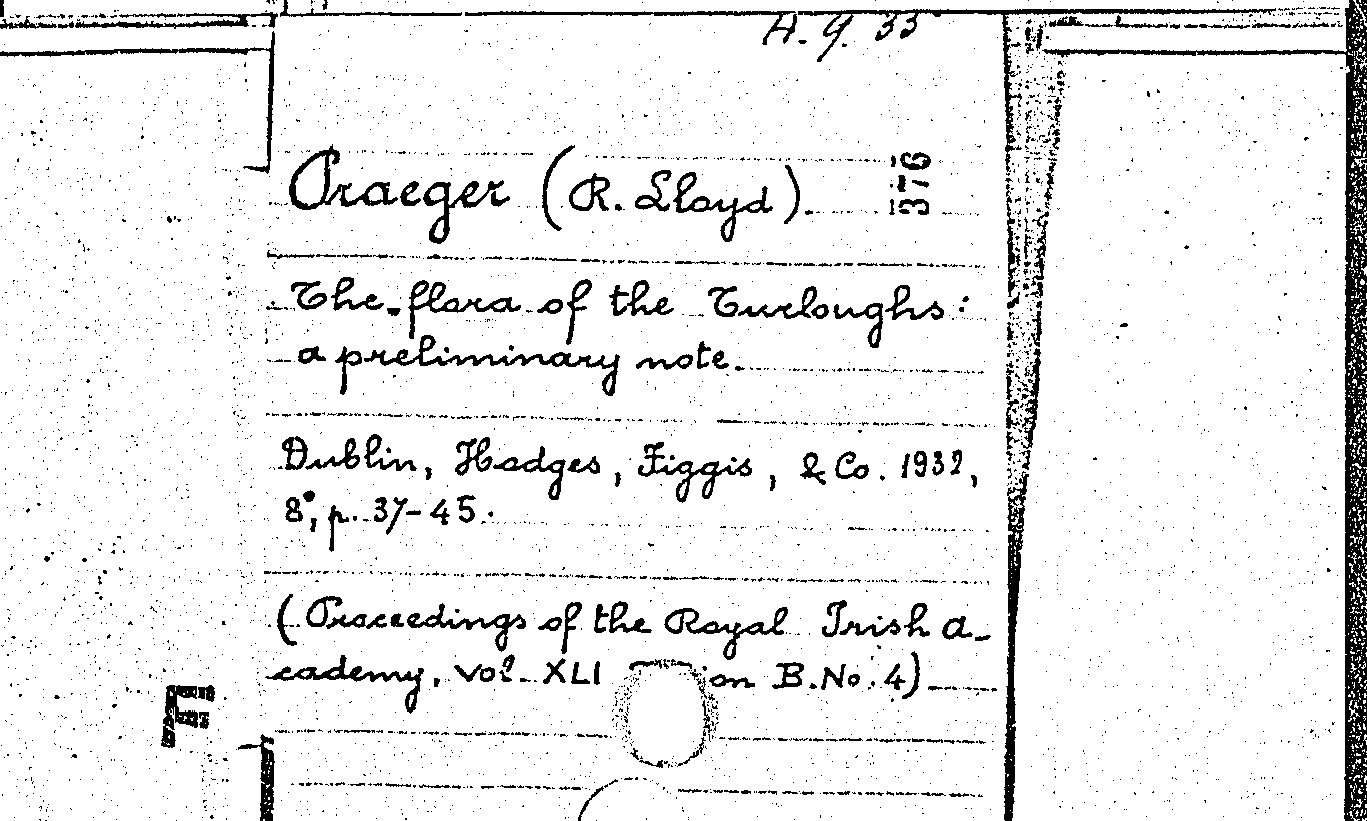 A. 9. 33
Praeger (R. Lloyd). 376
The flora of the Turloughs :
a preliminary note.
Dublin, Hodges, Figgis, & Co. 1932,
8°, p. 37-45.
(Proceedings of the Royal Irish A-
cademy, vol. XLI on B. No. 4)
F